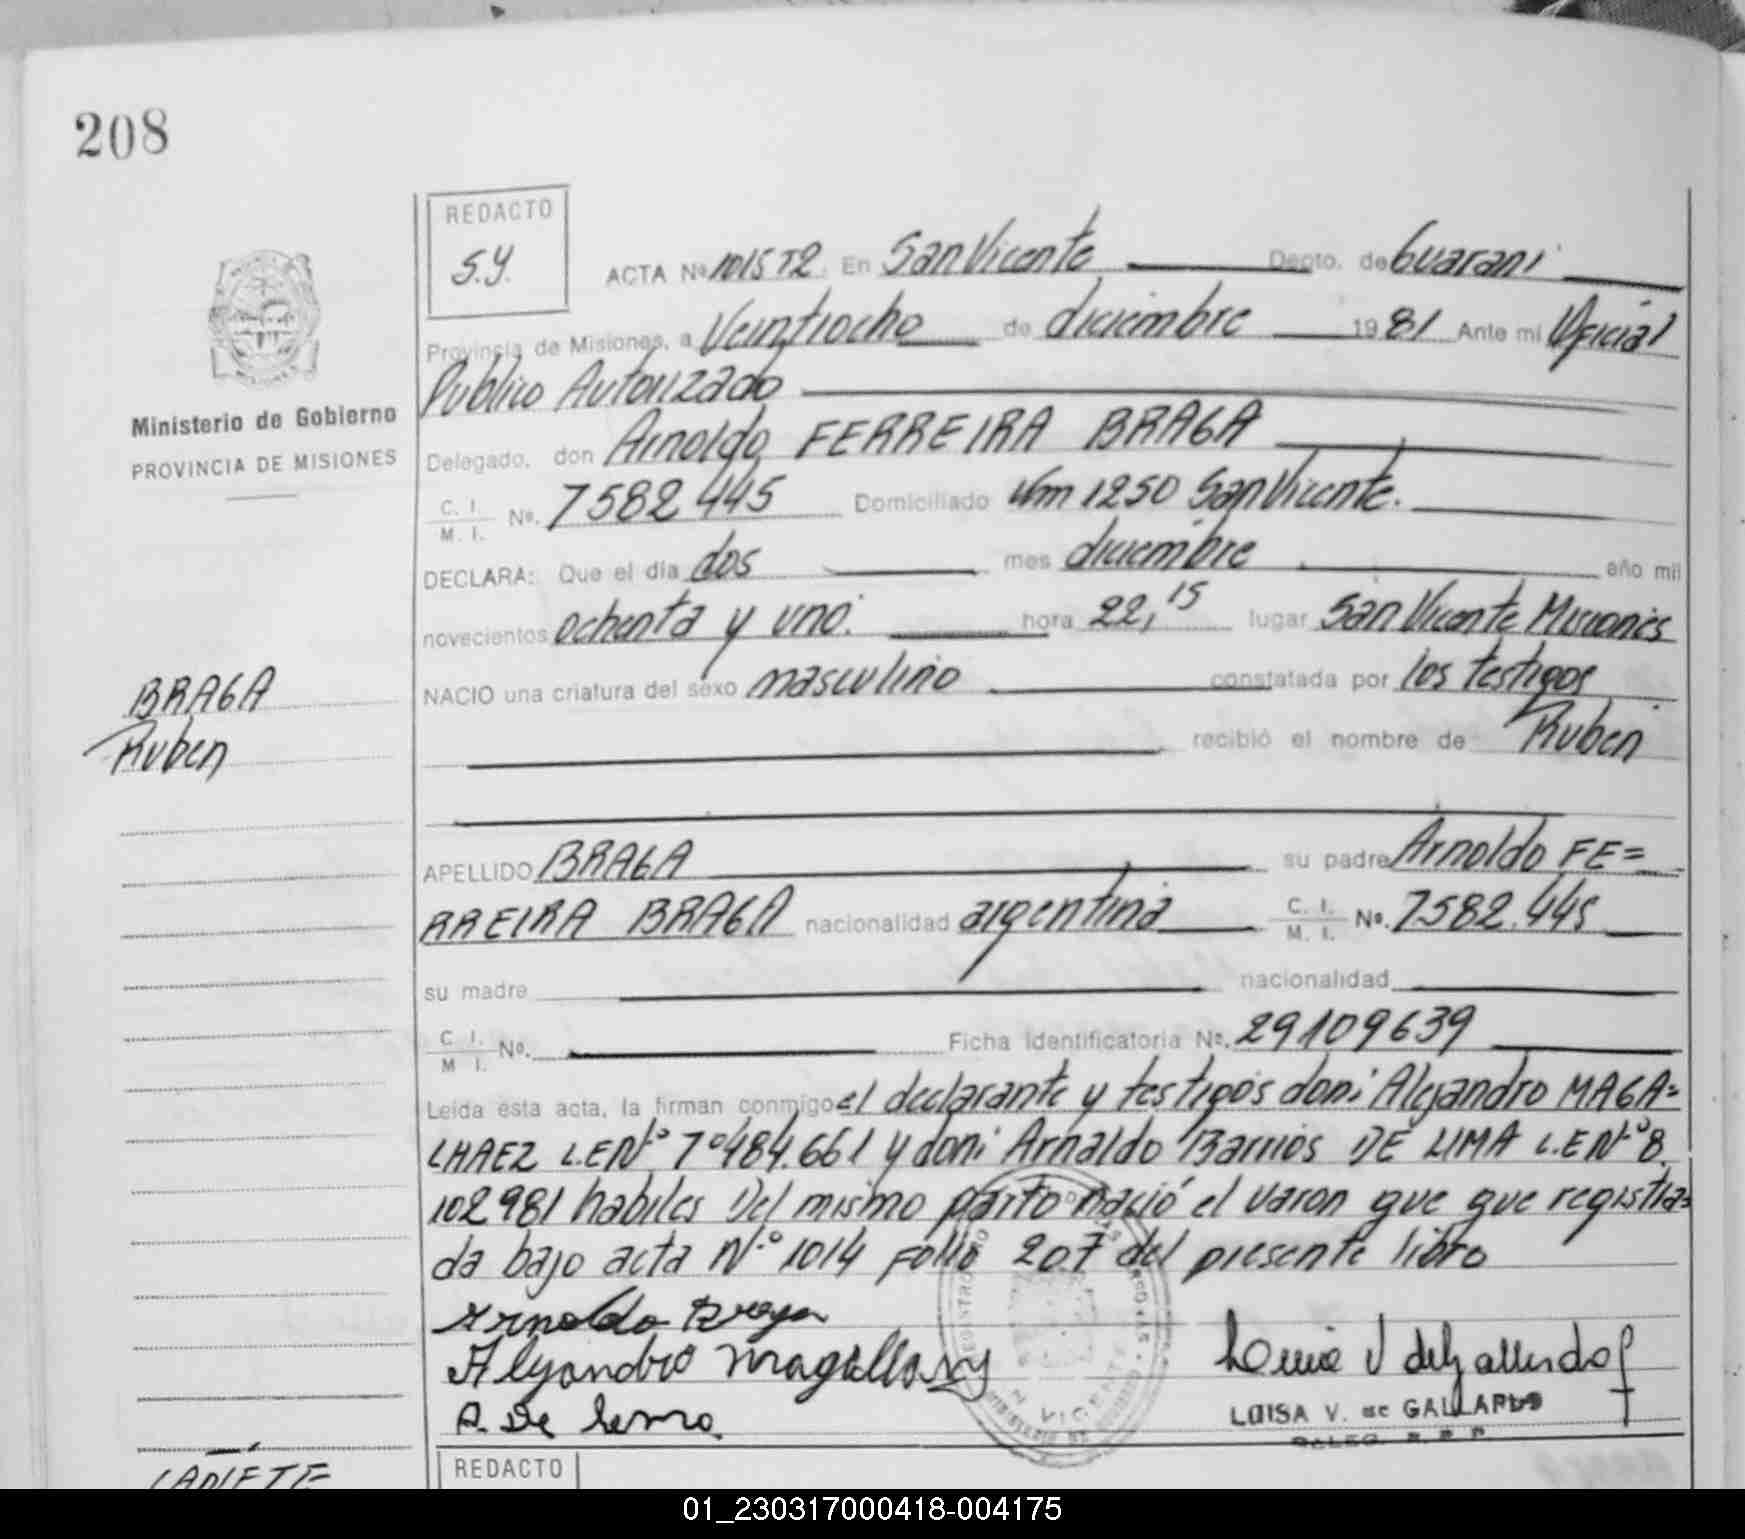 208
REDACTO
S.Y.
ACTA Nº 1015 T2. En San Vicente Depto. de Guarani
Provincia de Misiones, a Veintiocho de diciembre 1981 Ante mi Oficial
Publico Autorizado
Ministerio de Gobierno
PROVINCIA DE MISIONES
Delegado, don Arnoldo FERREIRA BRAGA
C. I.
M. I. Nº. 7582445 Domiciliado Km 1250 San Vicente.
DECLARA: Que el día dos mes diciembre año mil
novecientos ochenta y uno. hora 22,15 lugar San Vicente Misiones
NACIO una criatura del sexo masculino constatada por los testigos
BRAGA
Ruben
recibió el nombre de Ruben
APELLIDO BRAGA su padre Arnoldo FE=
RREIRA BRAGA nacionalidad argentina C. I. M. I. Nº. 7.582.445
su madre nacionalidad
C. I.
M. I. Nº. Ficha Identificatoria Nº. 29109639
Leída ésta acta, la firman conmigo el declarante y testigos don: Alejandro MAGA=
LHAEZ L.E Nº 7º484.661 y don: Arnaldo Barrios DE LIMA L.E Nº 8.
102981 habiles Del mismo parto nació el varon que que registra=
da bajo acta N.º 1014 Folio 207 del presente libro
Arnoldo Braga
Alejandro
A. De
LUISA V. de GALLARDO
REDACTO
CAÑETE
01_230317000418-004175